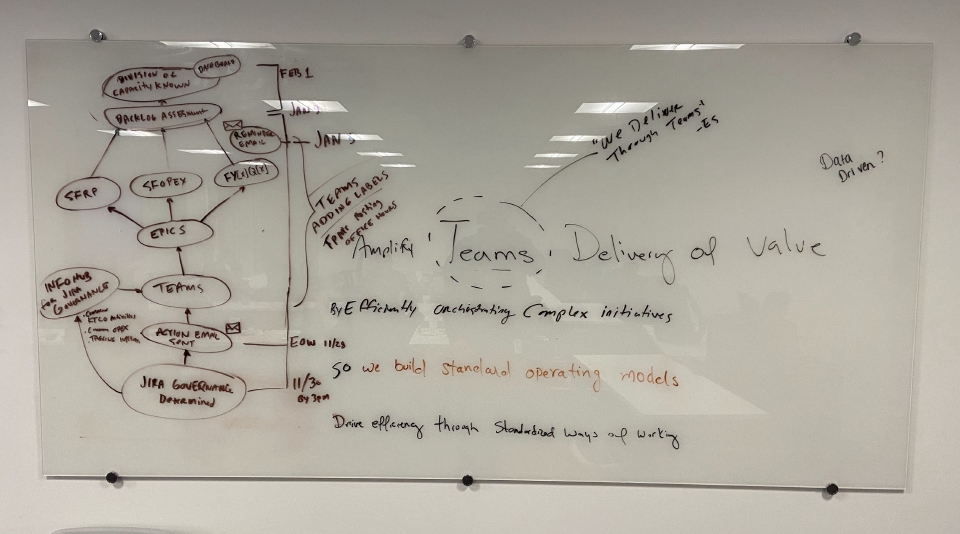 DASHBOARD
DIVISION OF
CAPACITY KNOWN
BACKLOG ASSESSMENT
REMINDER
EMAIL
SFRP
SFOPEX
FY[x]Q[x]
EPICS
TEAMS
INFO HUB
for JIRA
GOVERNANCE
KTLO Activities
Common OPEX
ACTION EMAIL
SENT
JIRA GOVERNANCE
Determined
FEB 1
JAN
JAN 5
TEAMS
ADDING LABELS
OFFICE HOURS
EOW 11/23
11/30
By 3pm
"We Deliver
Through Teams"
-ES
Data
Driven?
Amplify Teams Delivery of Value
By Efficiently orchestrating Complex initiatives
So we build standard operating models
Drive efficiency through Standardized Ways of Working